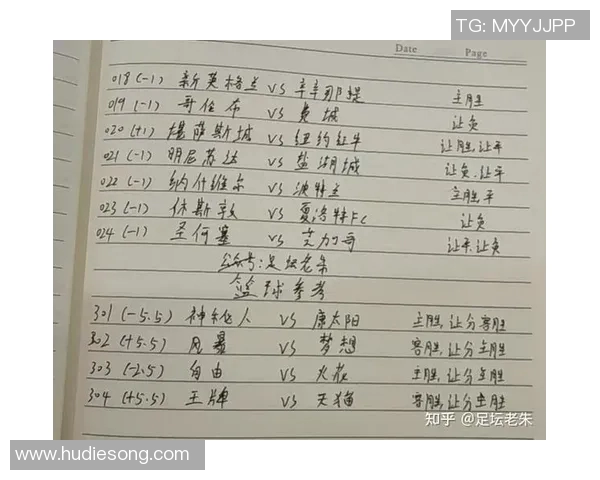 TG: MYYJJPP
Date Page
018 (-1) 新英格兰 VS 辛辛那提 主胜
019 (-1) 哥伦布 VS 费城 让负
020 (+1) 堪萨斯城 VS 纽约红牛 让胜,让平
021 (-1) 明尼苏达 VS 盐湖城 让负.让平
022 (-1) 纳什维尔 VS 波特兰 主胜,平
023 (-1) 休斯敦 VS 夏洛特FC 让负
024 (-1) 圣何塞 VS 芝加哥 让平.让负
公众号:足坛老朱
篮球参考
301 (-5.5) 神秘人 VS 康太阳 主胜,让分客胜
302 (+5.5) 风暴 VS 梦想 客胜,让分主胜
303 (-2.5) 自由 VS 火花 主胜,让分主胜
304 (+5.5) 王牌 VS 天猫 客胜,让分主胜
知乎 @足坛老朱
www.hudiesong.com